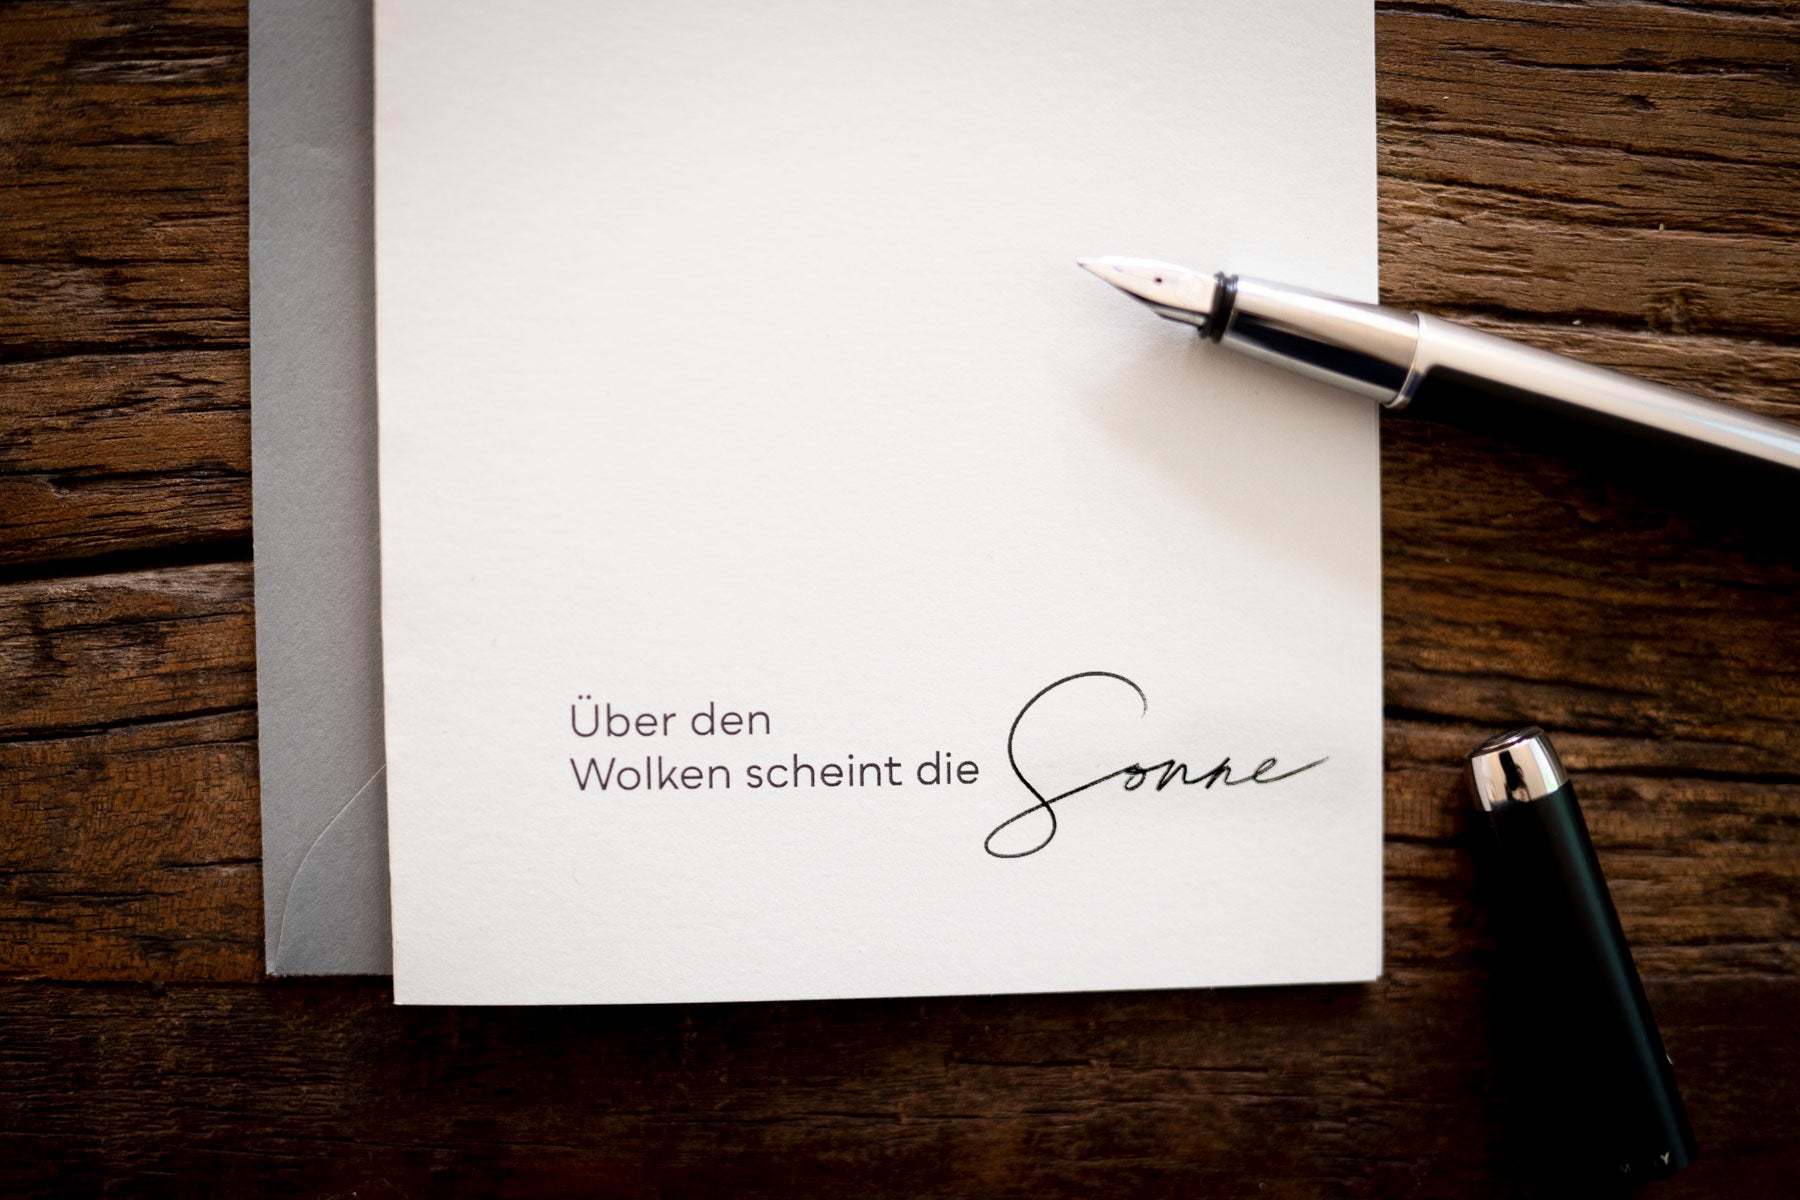 Über den
Wolken scheint die Sonne